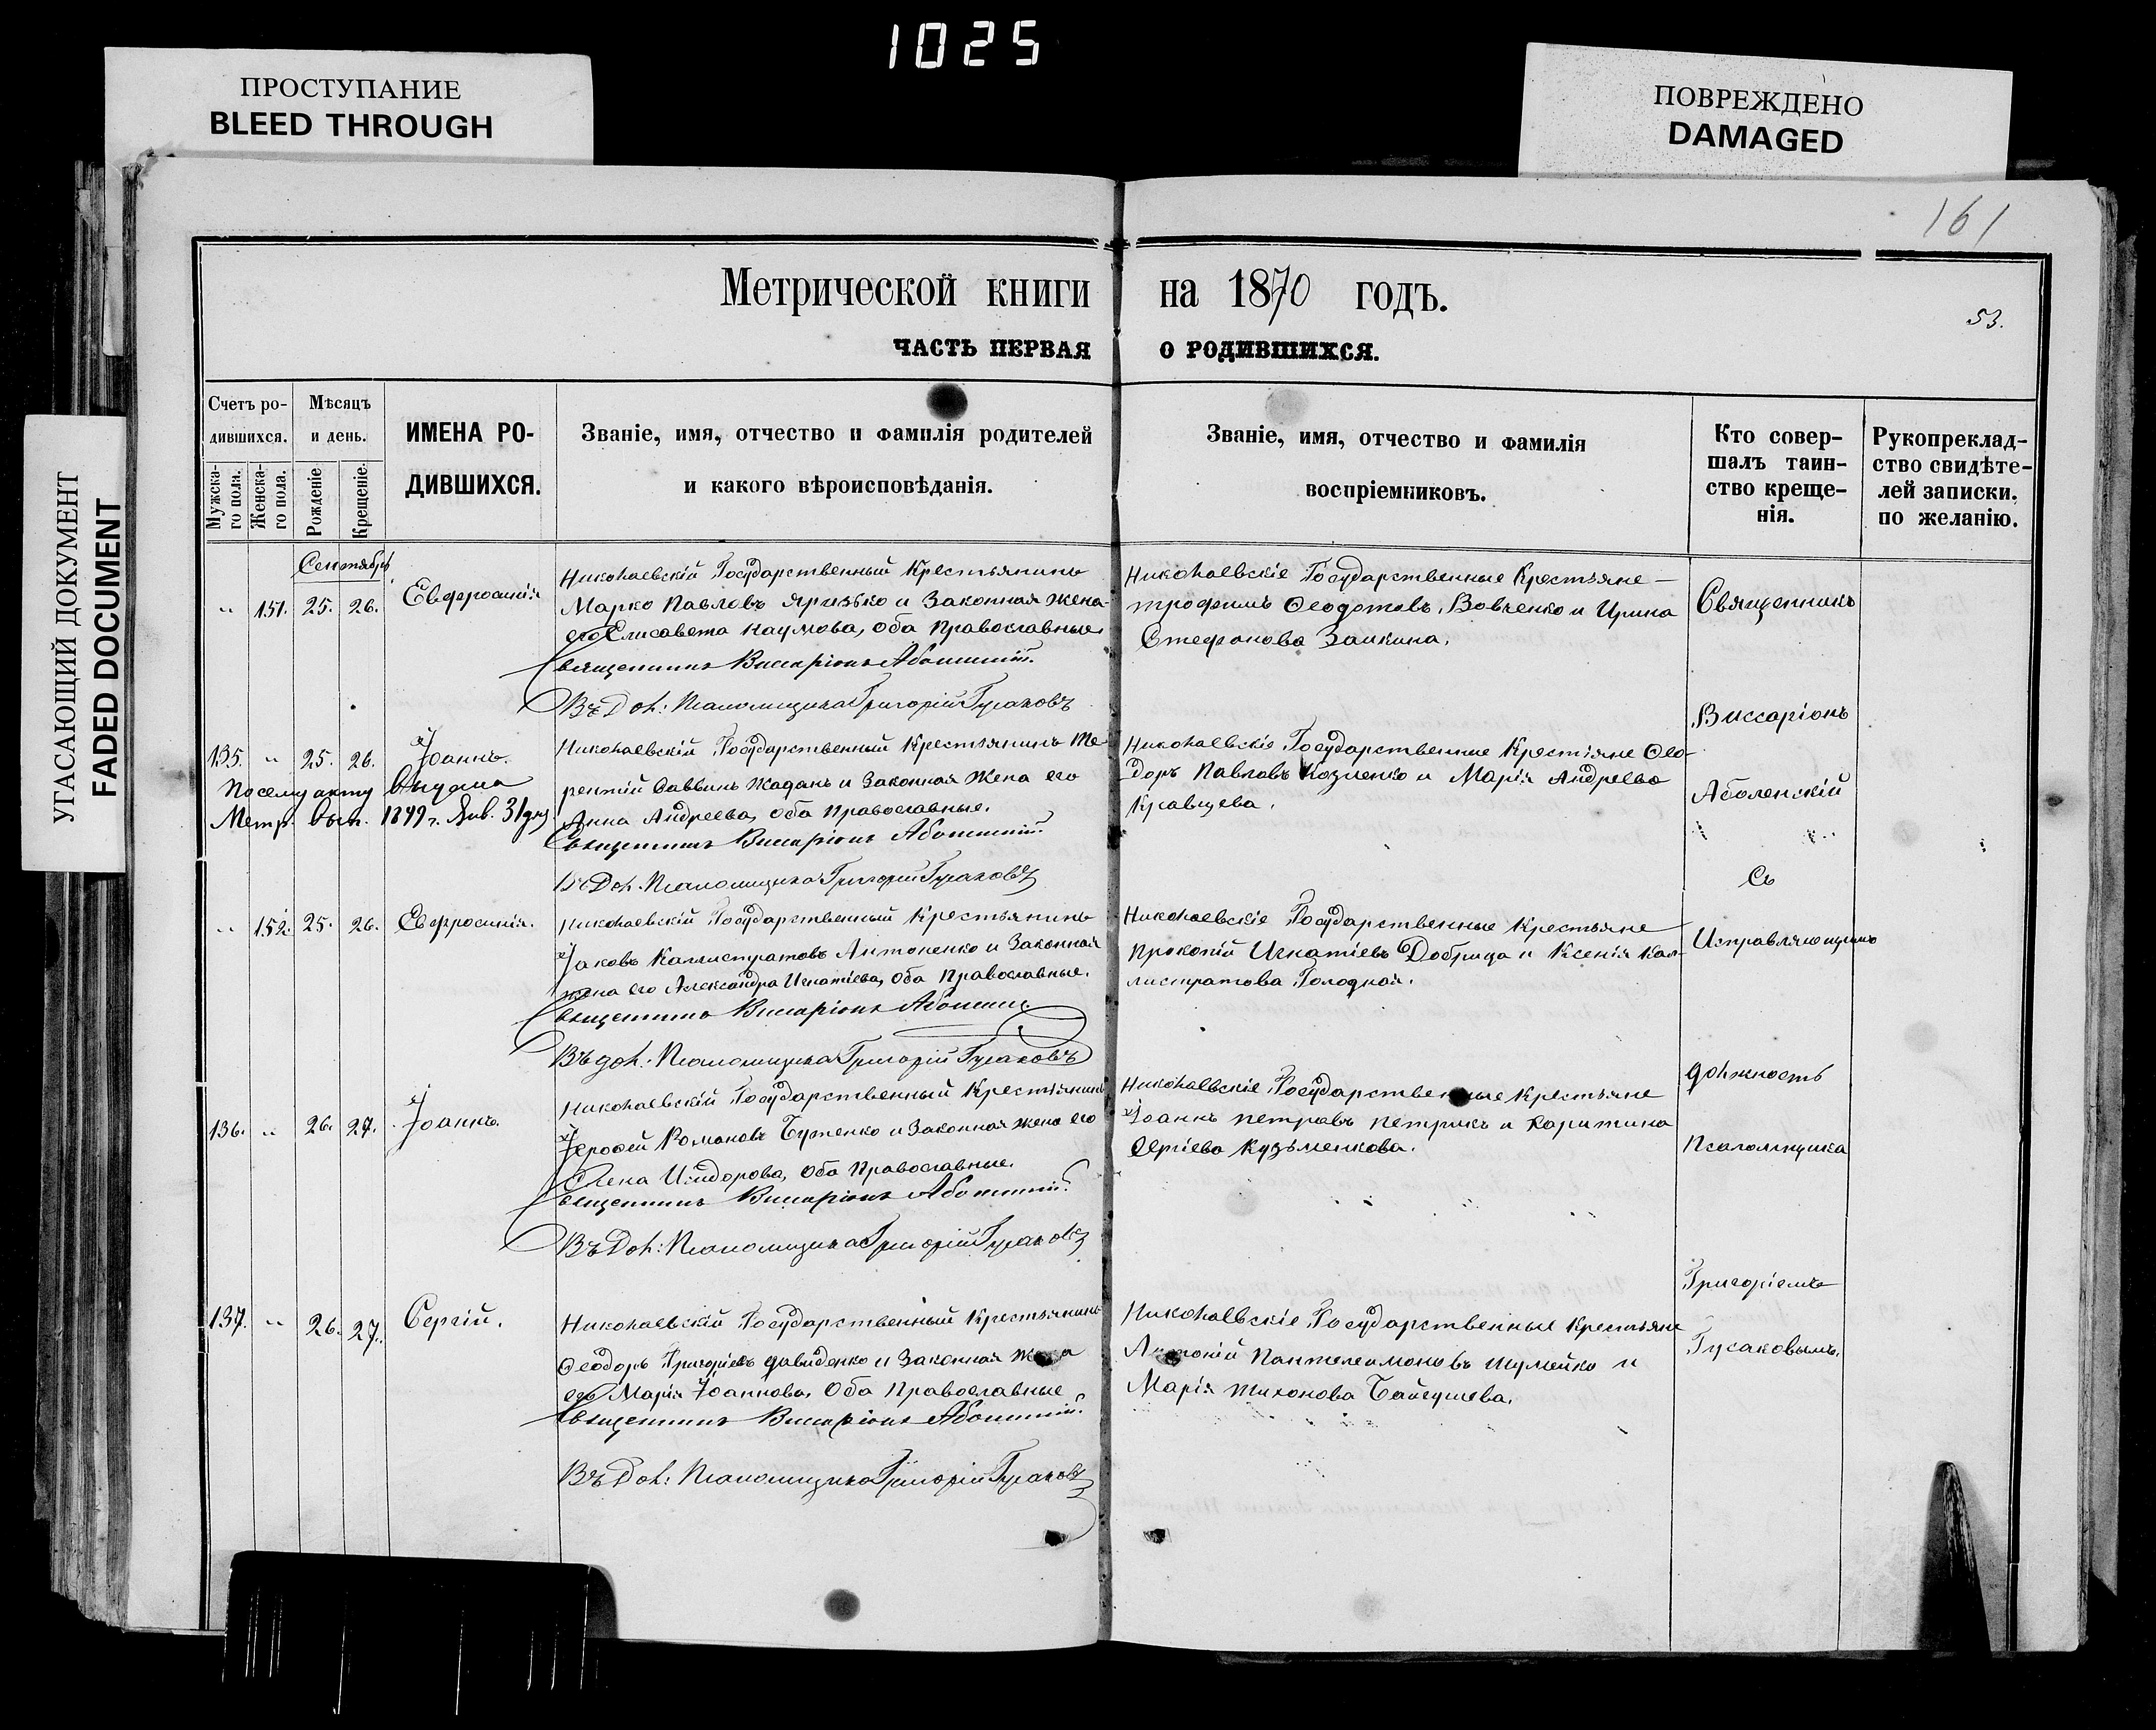 1025
ПРОСТУПАНИЕ
BLEED THROUGH
ПОВРЕЖДЕНО
DAMAGED
УГАСАЮЩИЙ ДОКУМЕНТ
FADED DOCUMENT
161
Метрической книги на 1870 годъ.
53.
ЧАСТЬ ПЕРВАЯ О РОДИВШИХСЯ.
Счетъ ро-
дившихся.
Мужска-
го пола.
Женска-
го пола.
Мѣсяцъ
и день.
Рожденіе
Крещеніе.
ИМЕНА РО-
ДИВШИХСЯ.
Званіе, имя, отчество и фамилія родителей
и какого вѣроисповѣданія.
Званіе, имя, отчество и фамилія
воспріемниковъ.
Кто совер-
шалъ таин-
ство креще-
нія.
Рукопреклад-
ство свидѣте-
лей записки.
по желанію.
Сентябрь
" 151. 25. 26. Евфросинія
Николаевскій Государственный Крестьянинъ
Марко Павловъ Яризько и Законная Жена
его Елисавета Наумова, Оба Православные.
Священникъ Виссаріонъ Аболенскій.
Въ Дол: Псаломщика Григорій Гусаковъ
Николаевскіе Государственные Крестьяне
Трофимъ Ѳеодотовъ Вовченко и Ирина
Стефанова Заикина.
135. " 25. 26. Іоаннъ.
По сему акту Выдана
Метр. Вып. 1899 г. Янв. 31 дня
Николаевскій Государственный Крестьянинъ Те-
рентій Саввинъ Жаданъ и Законная Жена его
Анна Андреева, Оба Православные.
Священникъ Виссаріонъ Аболенскій.
Въ Дол. Псаломщика Григорій Гусаковъ
Николаевскіе Государственные Крестьяне Ѳео-
доръ Павловъ Козленко и Марія Андреева
Кравцева.
" 152. 25. 26. Евфросинія.
Николаевскій Государственный Крестьянинъ
Іаковъ Каллистратовъ Антоненко и Законная
жена его Александра Игнатіева, Оба Православные.
Священникъ Виссаріонъ Аболенскій
Въ дол: Псаломщика Григорій Гусаковъ
Николаевскіе Государственные Крестьяне
Прокопій Игнатіевъ Добрида и Ксенія Кал-
листратова Голодная.
136. " 26. 27. Іоаннъ.
Николаевскій Государственный Крестьянинъ
Іерофей Романовъ Бутенко и Законная жена его
Елена Исидорова, Оба Православные.
Священникъ Виссаріонъ Аболенскій.
Въ Дол: Псаломщика Григорій Гусаковъ
Николаевскіе Государственные Крестьяне
Іоаннъ Петровъ Петрикъ и Харитина
Сергіева Кузьменкова.
137. " 26. 27. Сергій.
Николаевскій Государственный Крестьянинъ
Ѳеодоръ Григоріевъ Давиденко и Законная Жена
его Марія Іоаннова, Оба Православные
Священникъ Виссаріонъ Аболенскій.
Въ Дол: Псаломщика Григорій Гусаковъ
Николаевскіе Государственные Крестьяне
Антоній Пантелеимоновъ Шумейко и
Марія Тихонова
Священникъ
Виссаріонъ
Аболенскій
Съ
Исправляющимъ
должность
Псаломщика
Григоріемъ
Гусаковымъ.